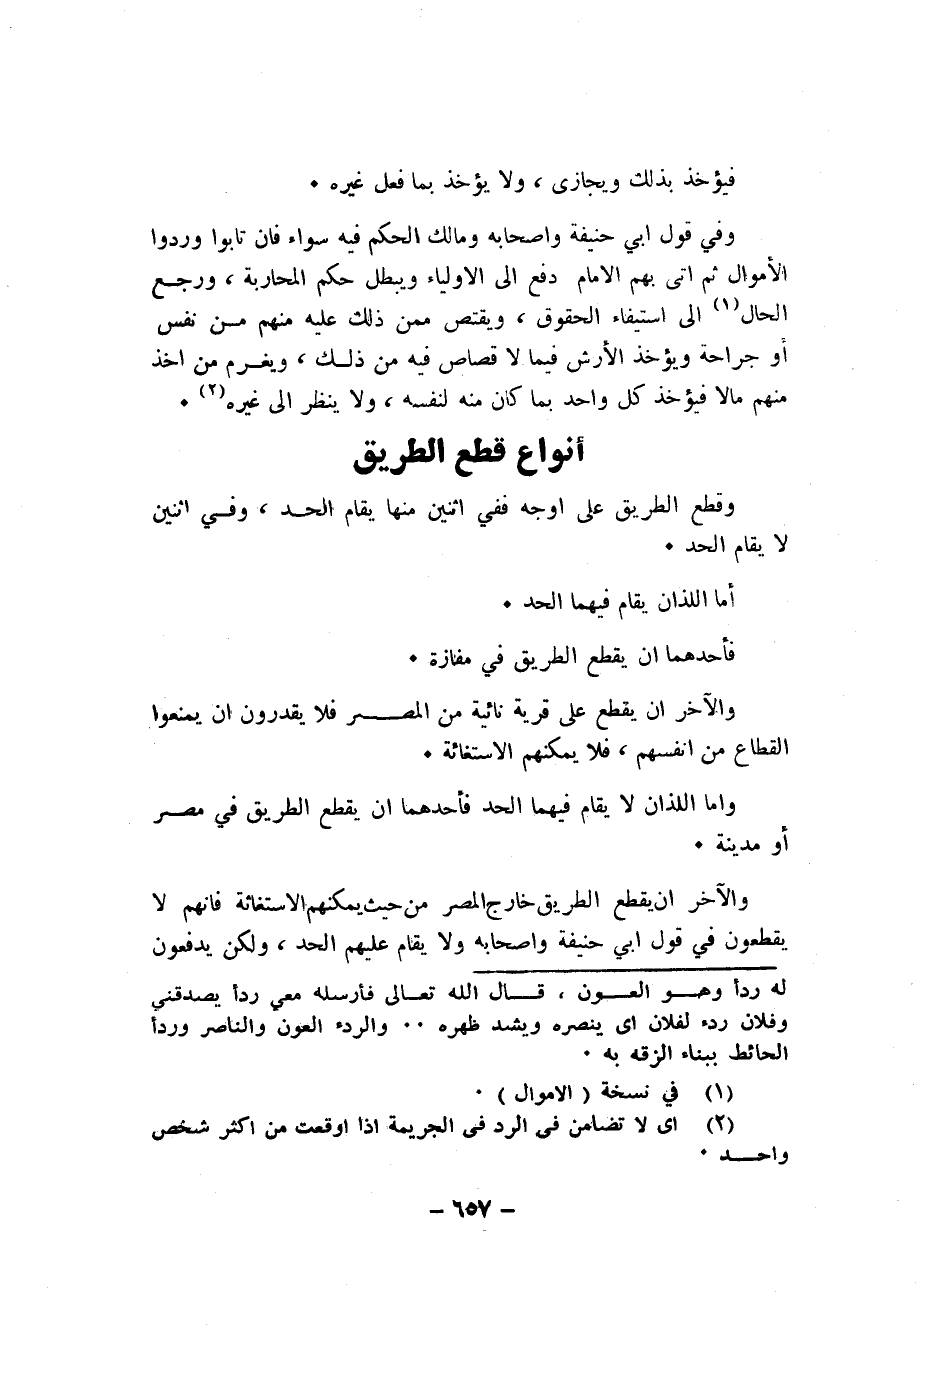 فيؤخذ بذلك ويجازى ، ولا يؤخذ بما فعل غيره .
وفي قول ابي حنيفة واصحابه ومالك الحكم فيه سواء فان تابوا وردوا
الأموال ثم اتى بهم الامام دفع الى الاولياء ويبطل حكم المحاربة ، ورجـع
الحال(١) الى استيفاء الحقوق ، ويقتص ممن ذلك عليه منهم مـن نفس
أو جراحة ويؤخذ الأرش فيما لا قصاص فيه من ذلـك ، ويغـرم من اخذ
منهم مالا فيؤخذ كل واحد بما كان منه لنفسه ، ولا ينظر الى غيره(٢) .
أنواع قطع الطريق
وقطع الطريق على اوجه ففي اثنين منها يقام الحـد ، وفـي اثنين
لا يقام الحد .
أما اللذان يقام فيهما الحد .
فأحدهما ان يقطع الطريق في مفازة .
والآخر ان يقطع على قرية نائية من المصـــر فلا يقدرون ان يمنعوا
القطاع من انفسهم ، فلا يمكنهم الاستغاثة .
واما اللذان لا يقام فيهما الحد فأحدهما ان يقطع الطريق في مصـر
أو مدينة .
والآخر ان يقطع الطريق خارج المصر من حيث يمكنهم الاستغاثة فانهم لا
يقطعون في قول ابي حنيفة واصحابه ولا يقام عليهم الحد ، ولكن يدفعون
له ردأ وهـو العـون ، قـال الله تعـالى فأرسله معي ردأ يصدقني
وفلان ردء لفلان اى ينصره ويشد ظهره .. والردء العون والناصر وردأ
الحائط ببناء الزقه به .
(١) في نسخة ( الاموال ) .
(٢) اى لا تضامن فى الرد فى الجريمة اذا اوقعت من اكثر شخص
واحـــد .
– ٦٥٧ –